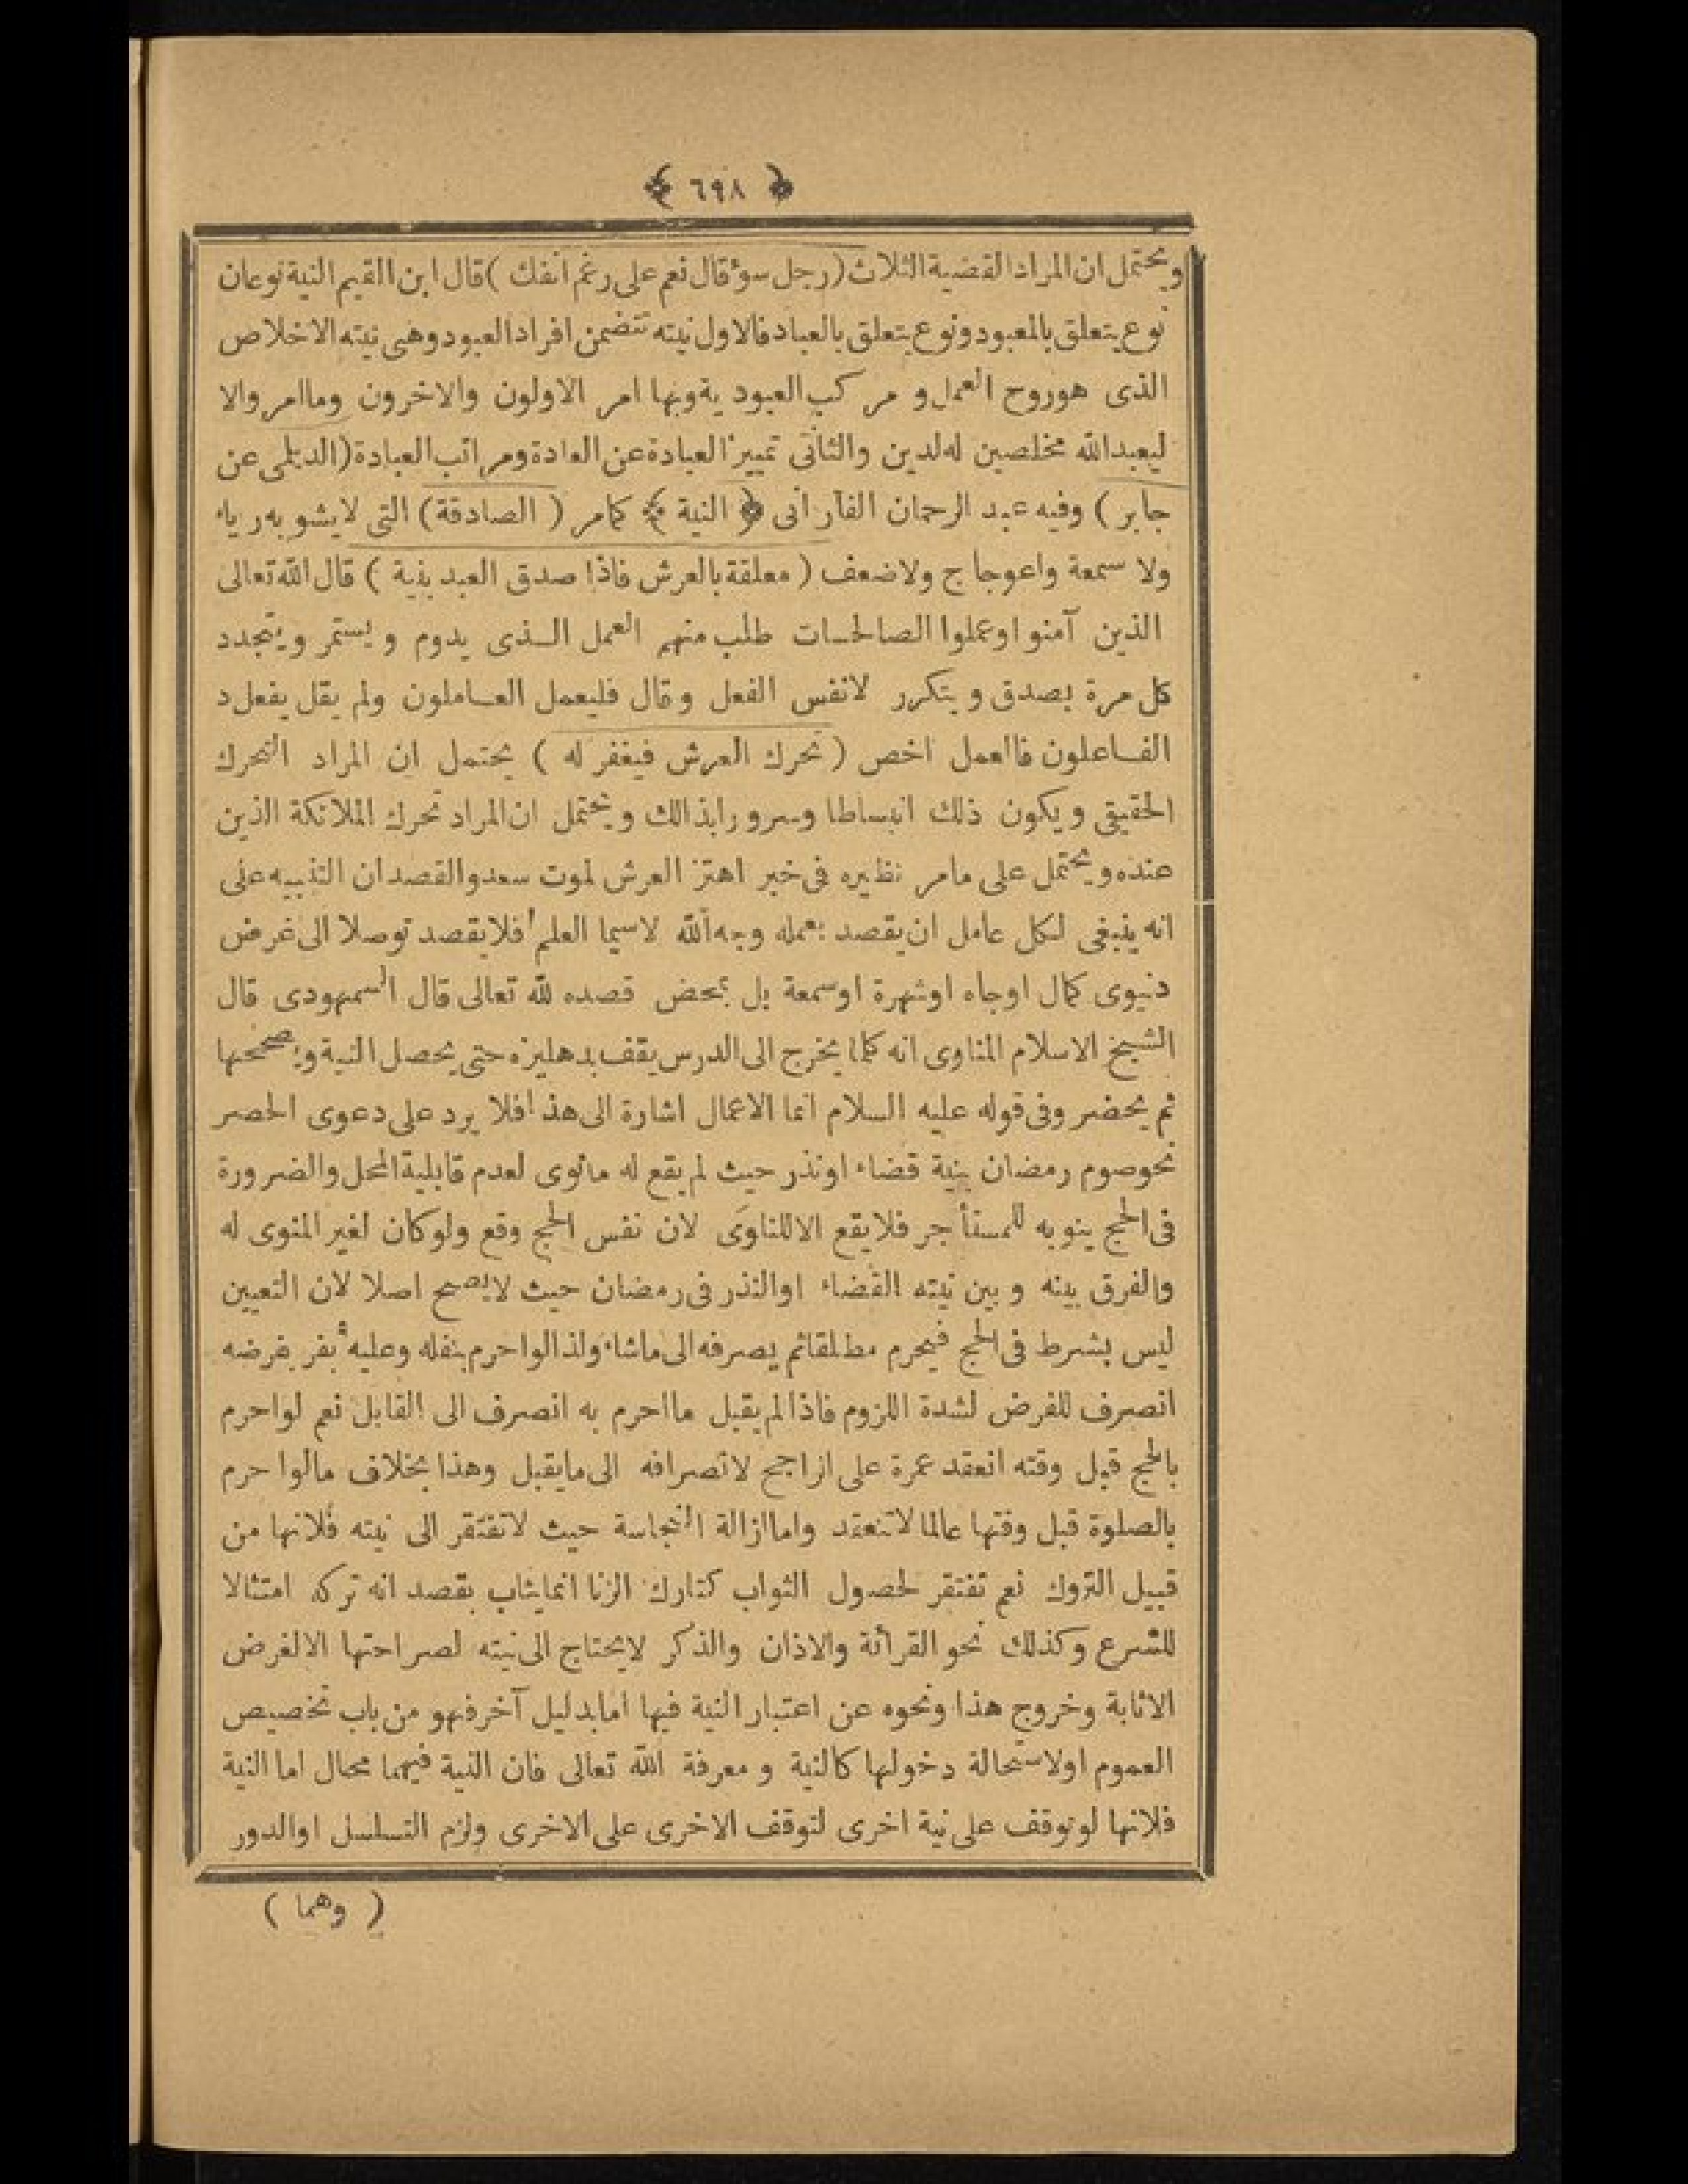 ﴿ ٦٩٨ ﴾
ويحتمل ان المراد القضية الثلاث (رجل سوء قال نعم على رغم انفك ) قال ابن القيم النية نوعان
نوع يتعلق بالمعبود ونوع يتعلق بالعباد فالاول نيته تتضمن افراد العبود وهى نيته الاخلاص
الذى هو روح العمل و مركب العبودية وبها امر الاولون والاخرون وماامر والا
ليعبدالله مخلصين له لدين والثانى تمييز العبادة عن العادة ومراتب العبادة (الديلمى عن
جابر ) وفيه عبد الرحمان الفآرانى ﴿ النية ﴾ كمامر ( الصادقة ) التى لايشو به رياء
ولا سمعة واعوجاج ولاضعف ( معلقة بالعرش فاذا صدق العبد بنية ) قال الله تعالى
الذين آمنو اوعملوا الصالحات طلب منهم العمل الذى يدوم و يستمر ويتجدد
كل مرة بصدق و يتكرر لانفس الفعل وقال فليعمل العاملون ولم يقل يفعل د
الفاعلون فالعمل اخص ( تحرك العرش فيغفر له ) يحتمل ان المراد التحرك
الحقيقى ويكون ذلك انبساطا وسرورا بذالك ويحتمل ان المراد تحرك الملائكة الذين
عنده ويحتمل على مامر نظيره فى خبر اهتز العرش لموت سعد والقصد ان التنبيه على
انه ينبغى لكل عامل ان يقصد بعمله وجه الله لاسيما العلم فلا يقصد توصلا الى غرض
دنيوى كمال اوجاه اوشهرة اوسمعة بل بمحض قصده لله تعالى قال السمهودى قال
الشيخ الاسلام المناوى انه كلما يخرج الى الدرس يقف بدهليزه حتى يحصل النية ويصححها
ثم يحضر وفى قوله عليه السلام انما الاعمال اشارة الى هذا فلا يرد على دعوى الحصر
نحوصوم رمضان بنية قضاء اونذر حيث لم يقع له مانوى لعدم قابلية المحل والضرورة
فى الحج ينويه للمستأجر فلا يقع الاللناوى لان نفس الحج وقع ولو كان لغير المنوى له
والفرق بينه و بين نيته القضاء اوالنذر فى رمضان حيث لايصح اصلا لان التعيين
ليس بشرط فى الحج فيحرم مطلقا ثم يصرفه الى ماشاء ولذا لو احرم بنفله وعليه بفر بفرضه
انصرف للفرض لشدة اللزوم فاذا لم يقبل مااحرم به انصرف الى القابل نعم لواحرم
بالحج قبل وقته انعقد عمرة على ازاجح لانصرافه الى مايقبل وهذا بخلاف مالوا حرم
بالصلوة قبل وقتها عالما لاتنعقد واما ازالة النجاسة حيث لاتفتقر الى نيته فلانها من
قبيل التروك نعم تفتقر لحصول الثواب كتارك الزنا انمايثاب بقصد انه تركه امتثالا
للشرع وكذلك نحو القرائة والاذان والذكر لايحتاج الى نيته لصراحتها الالغرض
الاثابة وخروج هذا ونحوه عن اعتبار النية فيها اما بدليل آخر فهو من باب تخصيص
العموم اولاستحالة دخولها كالنية و معرفة الله تعالى فان النية فيهما محال اما النية
فلانها لوتوقف على نية اخرى لتوقف الاخرى على الاخرى ولزم التسلسل اوالدور
( وهما )